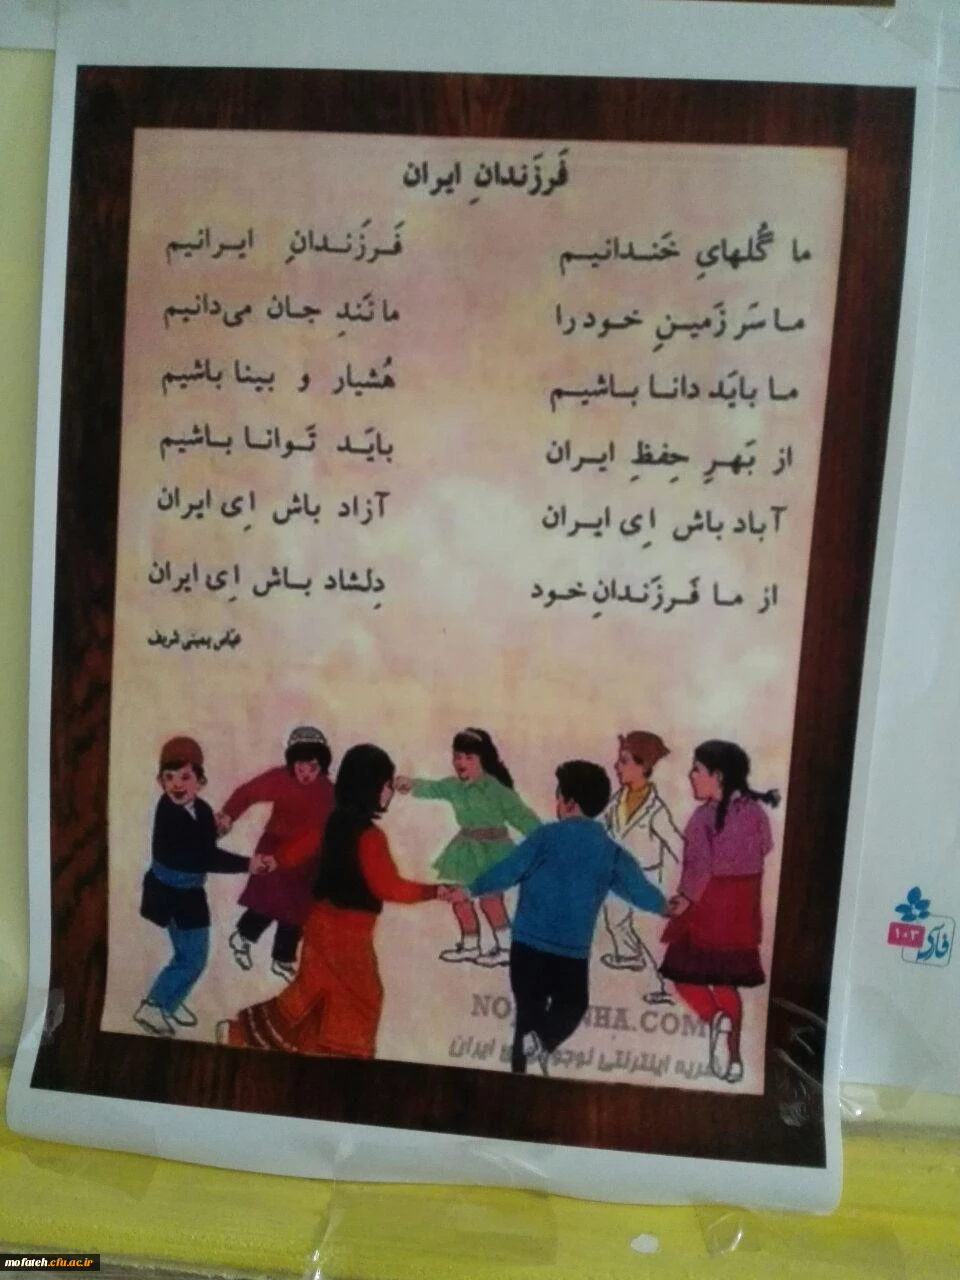 فَرزَندانِ ایران
ما گُلهایِ خَندانیم فَرزَندانِ ایرانیم
ما سَرزَمینِ خود را مانَندِ جان می‌دانیم
ما بایَد دانا باشیم هُشیار و بینا باشیم
از بَهرِ حِفظِ ایران بایَد تَوانا باشیم
آباد باش اِی ایران آزاد باش اِی ایران
از ما فَرزَندانِ خود دِلشاد باش اِی ایران
عباس یمینی شریف
فارسی
۱۰۳
NHA.COM
اینترنتی ایران
mofateh.cfu.ac.ir